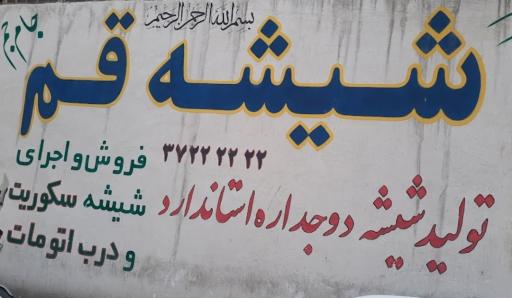 بسم الله الرحمن الرحیم
شیشه قم
۳۷۲۲ ۲۲ ۲۲
تولید شیشه دوجداره استاندارد
فروش و اجرای
شیشه سکوریت
و درب اتومات